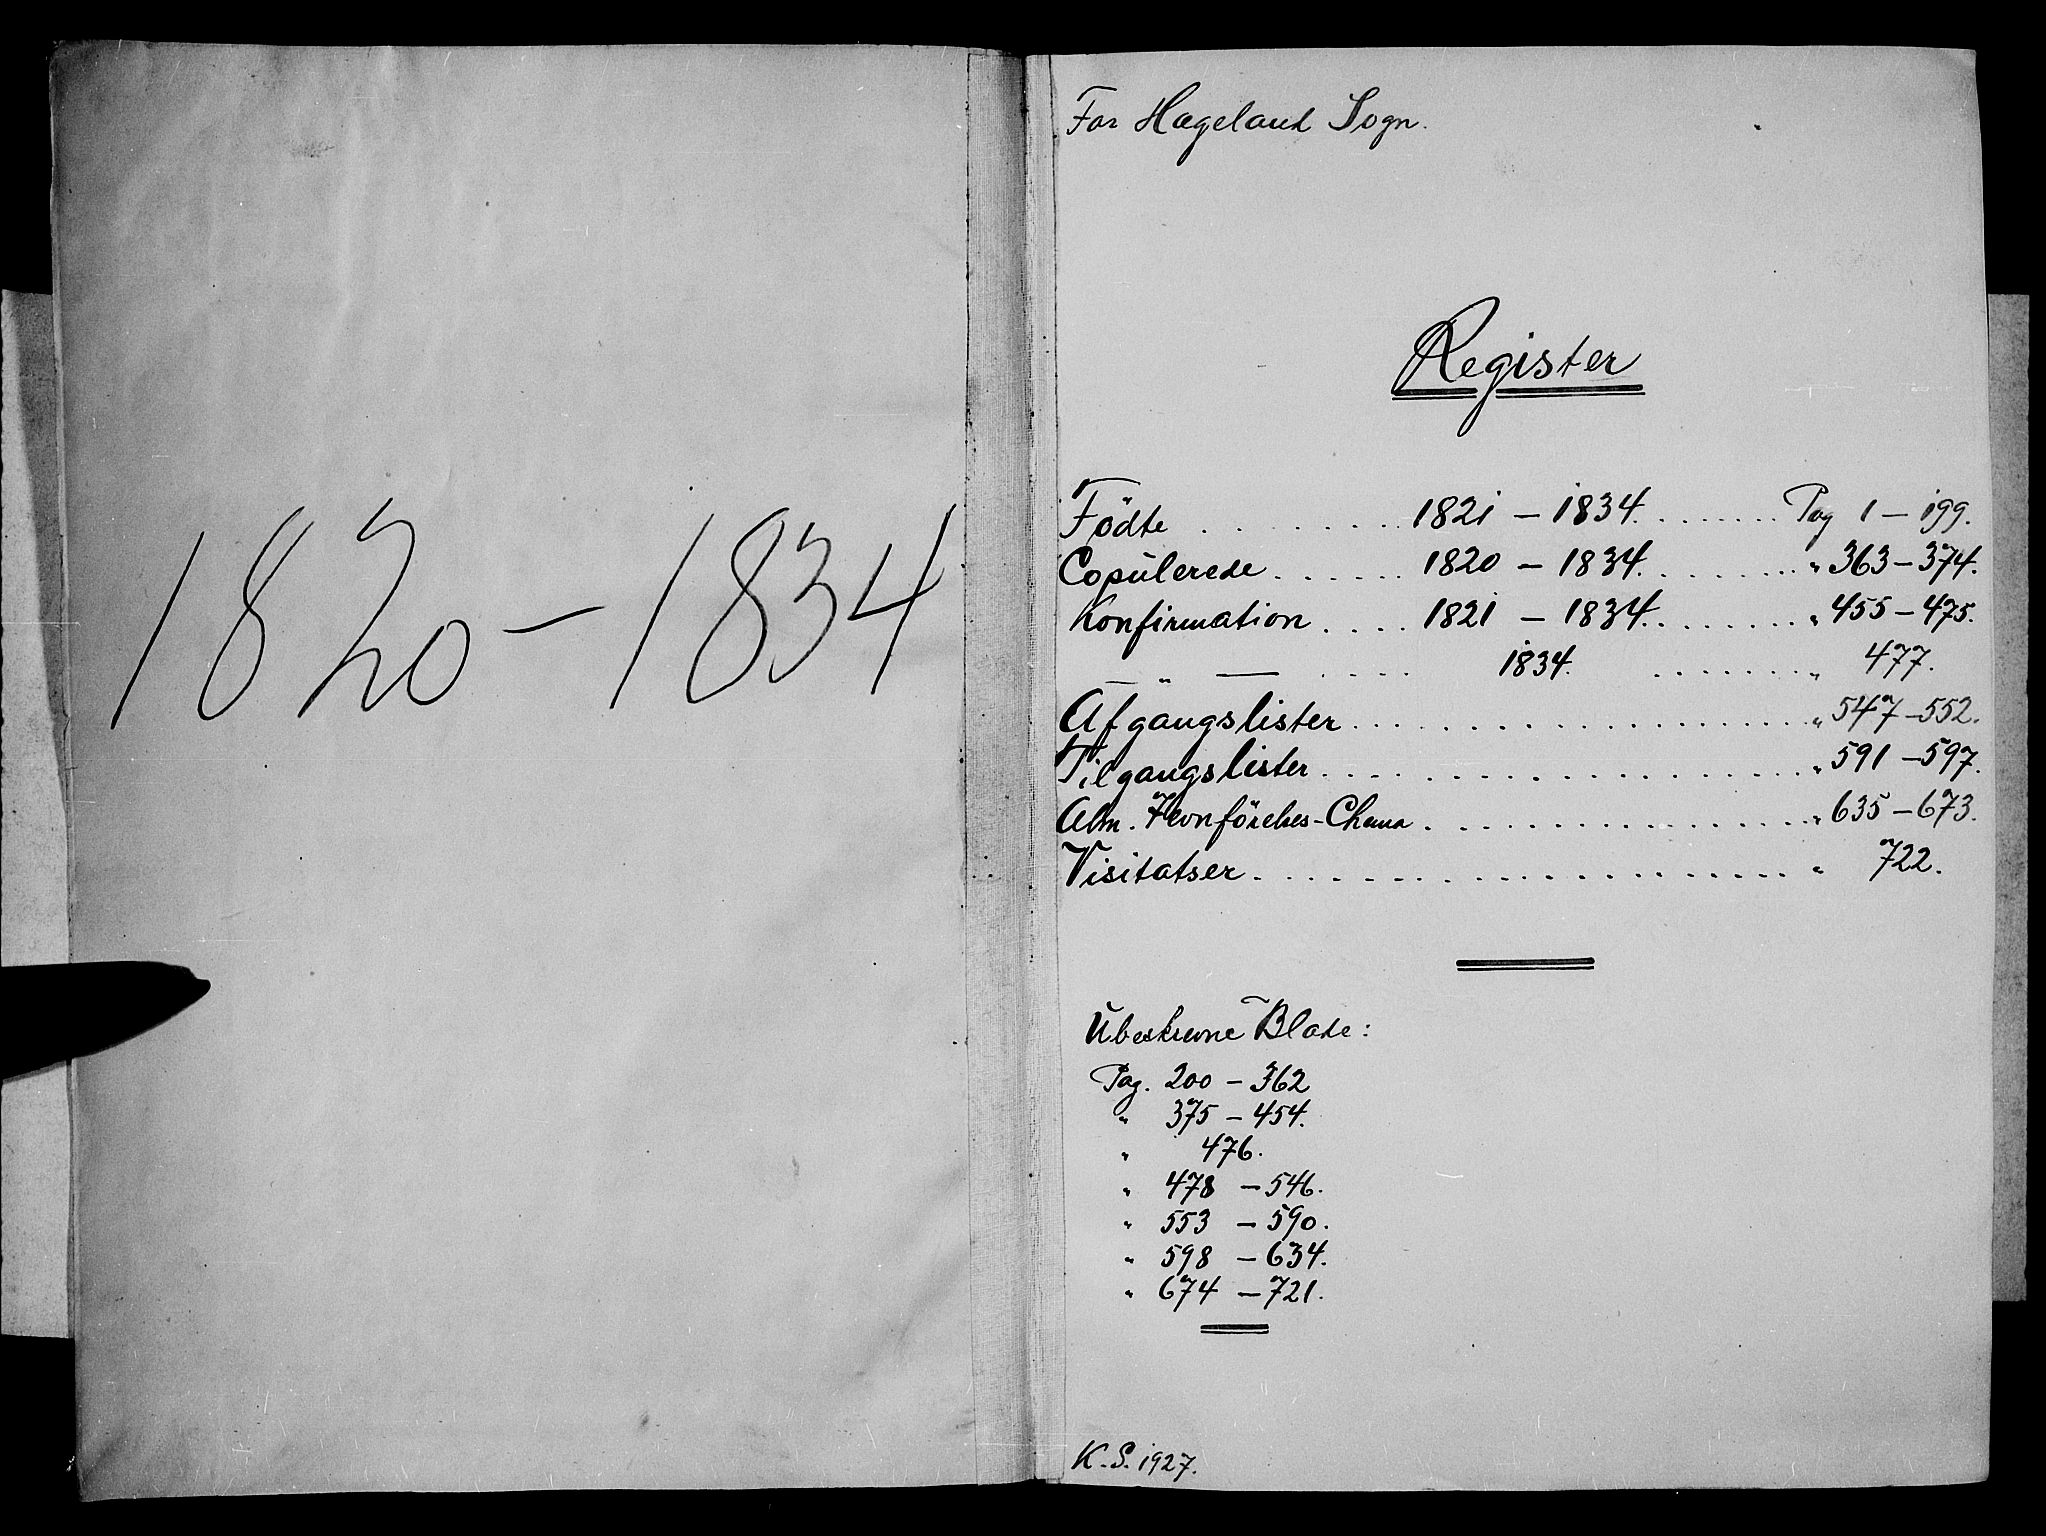 1820 – 1834
For Hægeland Sogn.
Register
Födte ......... 1821 – 1834. ....... Pag 1 – 199.
Copulerede ...... 1820 – 1834. ....... „ 363 – 374.
Konfirmation .... 1821 – 1834. ....... „ 455 – 475.
— „ — .... 1834. ....... „ 477.
Afgangslister .................... „ 547 – 552.
Tilgangslister .................... „ 591 – 597.
Alm. Jevnförelses-Chema .................... „ 635 – 673.
Visitatser .................... „ 722.
Ubeskrevne Blade:
Pag. 200 – 362
„ 375 – 454.
„ 476.
„ 478 – 546.
„ 553 – 590.
„ 598 – 634.
„ 674 – 721.
K. S. 1927.